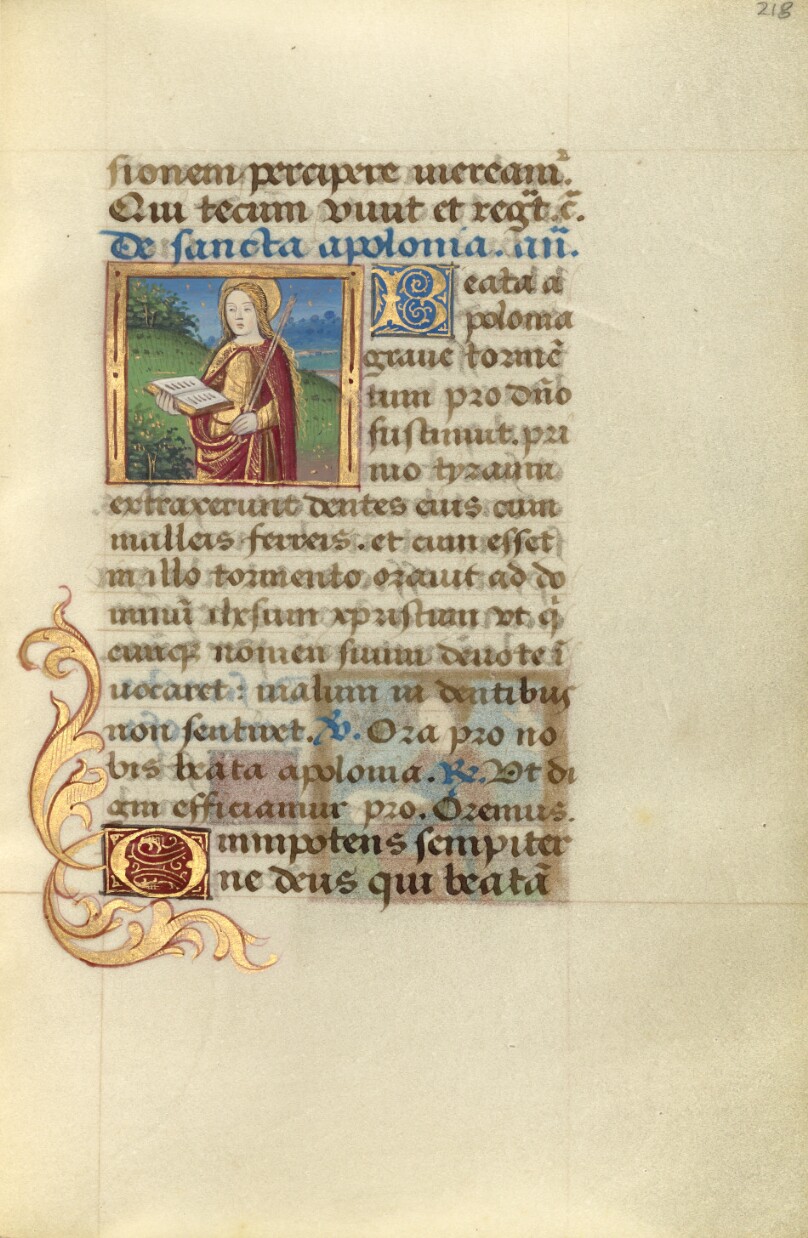 218
sionem percipere mereamᷣ.
Qui tecum viuit et regt̄. c̄.
De sancta apolonia. an̄.
Beata a
polonia
graue tormē
tum pro dño
sustinuit. pri
mo tyranni
extraxerunt dentes eius cum
malleis ferreis. et cum esset
in illo tormento orauit ad do
minū ihesum xpristum vt q̄
cunq; nomen suum deuote ī
uocaret: malum in dentibus
non sentiret. V. Ora pro no
bis beata apolonia. R. Vt di
gni efficiamur pro. Oremus.
Omnipotens sempiter
ne deus qui beatā